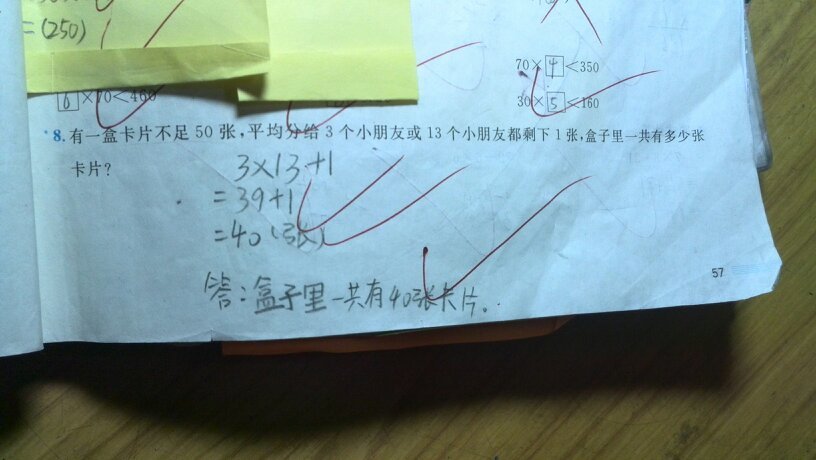 =(250)
70×4<350
6×70<460
30×5<160
8.有一盒卡片不足50张,平均分给3个小朋友或13个小朋友都剩下1张,盒子里一共有多少张
卡片?
3×13+1
=39+1
=40(张)
答:盒子里一共有40张卡片。
57